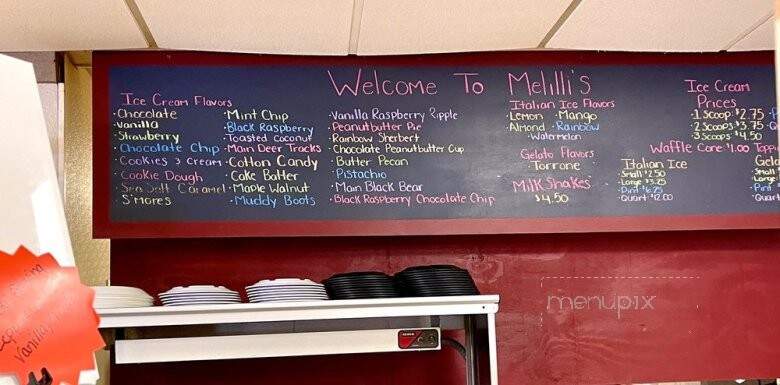 Welcome To Melilli's
Ice Cream Flavors
·Chocolate
·Vanilla
·Strawberry
·Chocolate Chip
·Cookies & Cream
·Cookie Dough
·Sea Salt Caramel
·S'mores
·Mint Chip
·Black Raspberry
·Toasted Coconut
·Main Deer Tracks
·Cotton Candy
·Cake Batter
·Maple Walnut
·Muddy Boots
·Vanilla Raspberry Ripple
·Peanutbutter Pie
·Rainbow Sherbert
·Chocolate Peanutbutter Cup
·Butter Pecan
·Pistachio
·Main Black Bear
·Black Raspberry Chocolate Chip
Italian Ice Flavors
·Lemon ·Mango
·Almond ·Rainbow
·Watermelon
Gelato Flavors
·Torrone
Milk Shakes
$4.50
Ice Cream
Prices
1 Scoop: $2.75
2 Scoops: $3.75
3 Scoops: $4.50
Waffle Cone: $1.00
Italian Ice
·Small $2.50
·Large $3.25
·Pint $6.25
·Quart $12.00
Gela
·Small
·Large
·Pint
·Quart
Vanilla
menupix